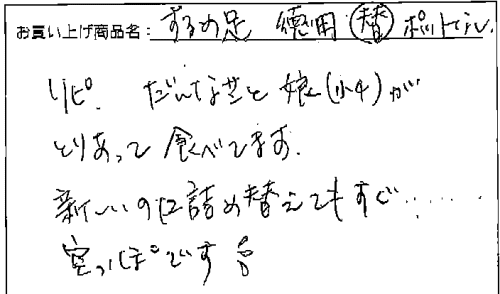 お買い上げ商品名：するめ足 徳用 替 ポットなし
リピ。だんな芒と娘(小4)が
とりあって食べてます。
新しいのに詰め替えてもすぐ……
空っぽです